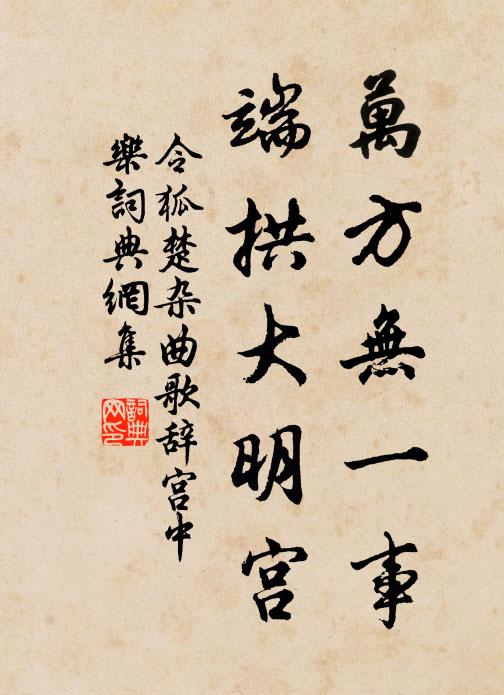 萬方無一事
端拱大明宫
令狐楚杂曲歌辞宫中
樂詞典網集
詞典网印